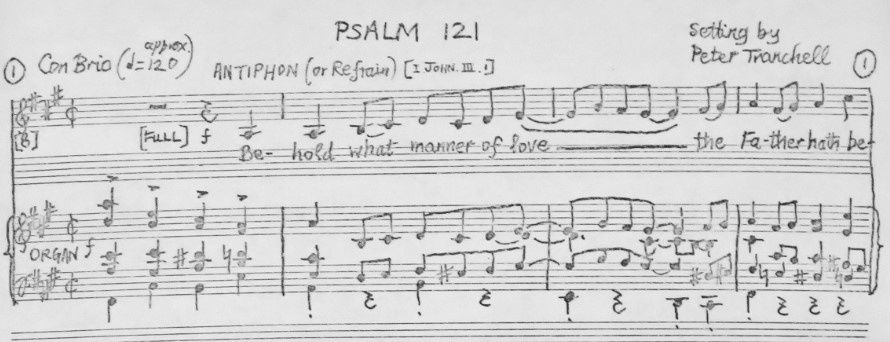 PSALM 121
Setting by
Peter Tranchell
① Con Brio (𝅗𝅥 = approx. 120) ANTIPHON (or Refrain) [I JOHN. III. 1] ①
[FULL] f
Be- hold what manner of love the Fa-ther hath be-
ORGAN f